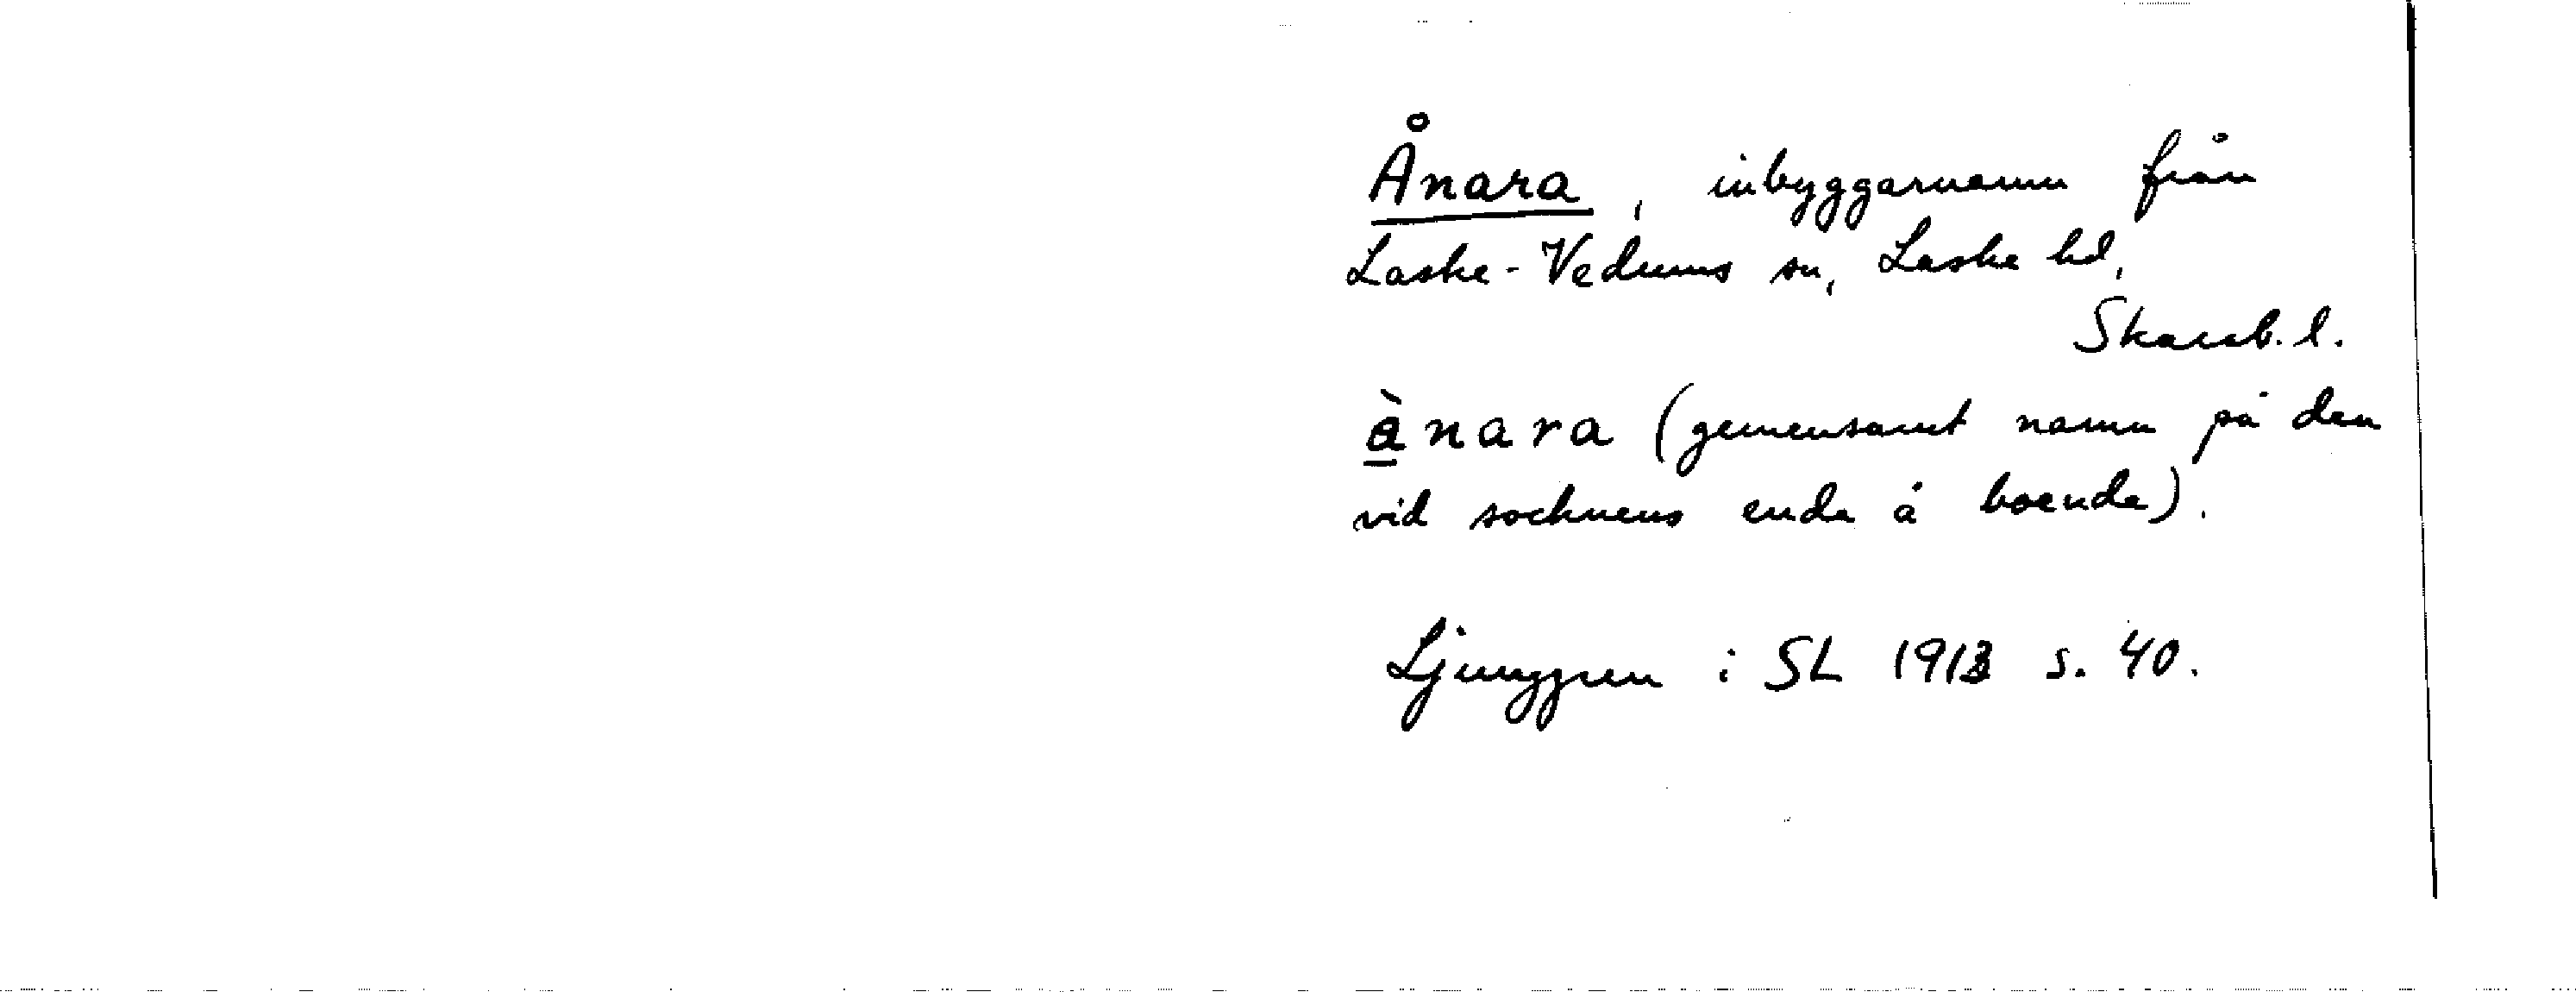 Ånara, inbyggarnamn från
Laske-Vedums sn, Laske hd,
Skarab. l.
ànara (gemensamt namn på den
vid socknens enda å boende).
Ljunggren i SL 1913 s. 40.